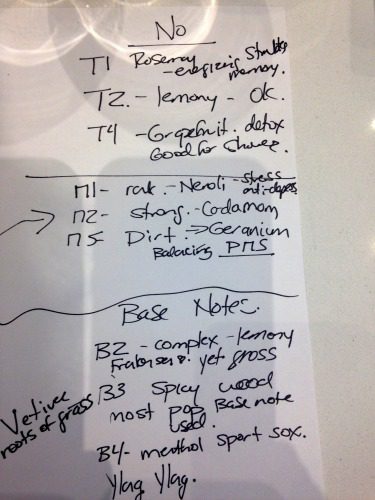 No
T1 Rosemary
- energizing
memory.
T2. - lemony - OK.
T4 - Grapefruit. detox
Good for
M1 - - Neroli - stress
anti-depress
M2 - strong. - Cadamom
M5 - Dirt. → Geranium
Balancing PMS
Base Notes.
B2 - complex - lemony
yet gross
B3 Spicy wood
most pop Base note
used.
B4 - menthol sport sox.
Ylag Ylag.
Vetiver
roots of grass